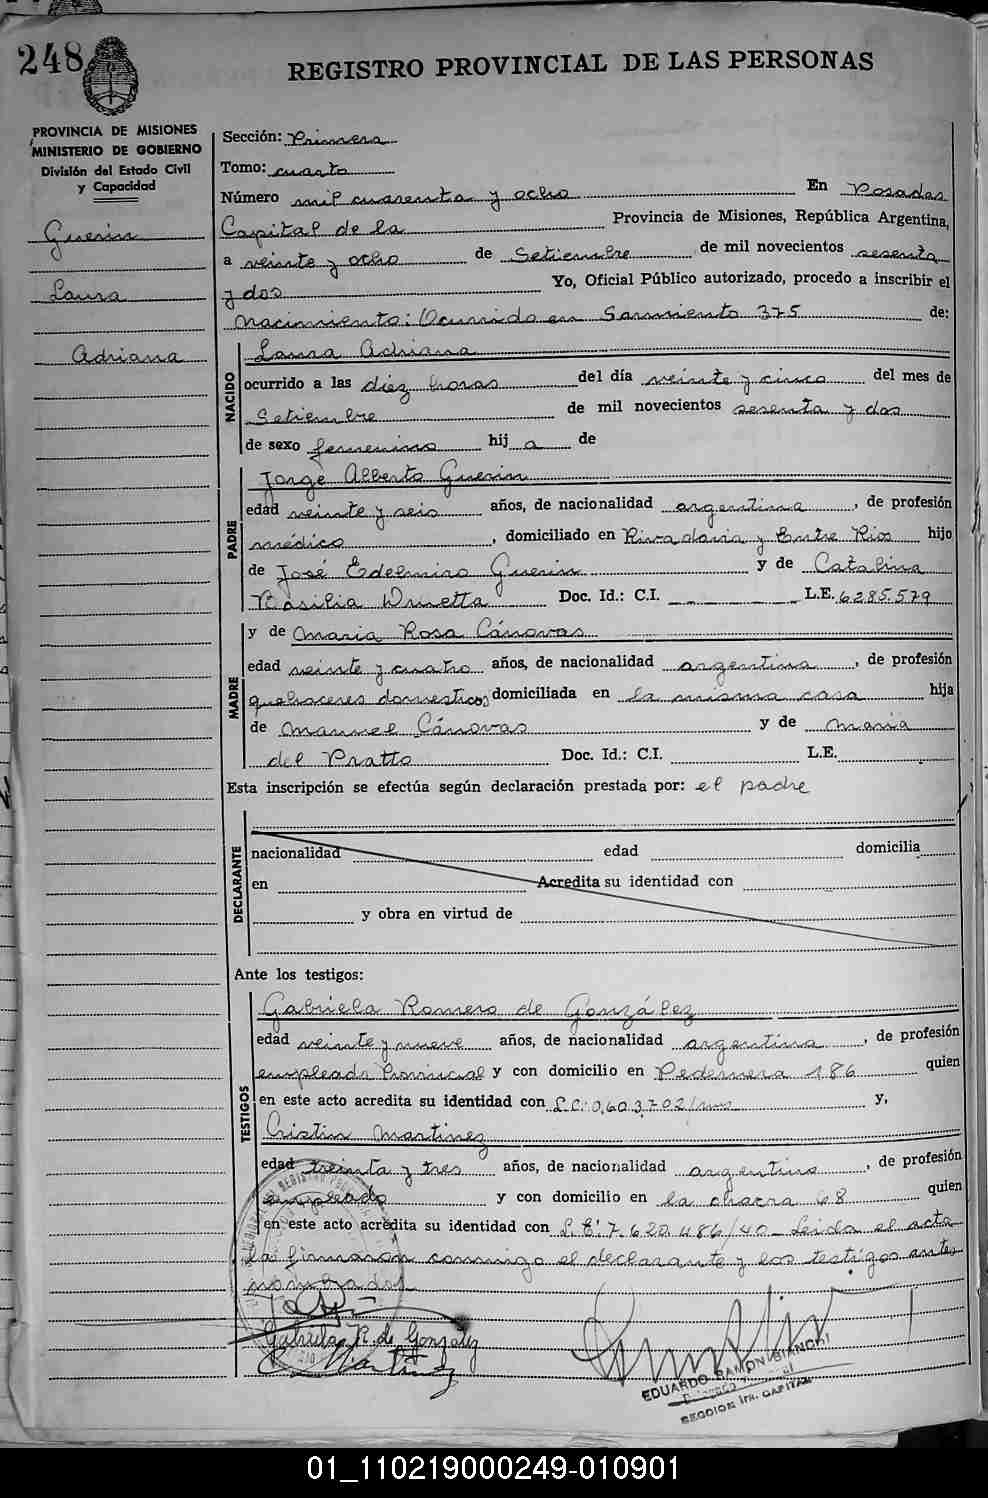 248
REGISTRO PROVINCIAL DE LAS PERSONAS
PROVINCIA DE MISIONES
MINISTERIO DE GOBIERNO
División del Estado Civil
y Capacidad
Guerin
Laura
Adriana
Sección: Primera
Tomo: cuarto
Número mil cuarenta y ocho En Posadas
Capital de la Provincia de Misiones, República Argentina,
a veinte y ocho de Setiembre de mil novecientos sesenta
y dos Yo, Oficial Público autorizado, procedo a inscribir el
Nacimiento: Ocurrido en Sarmiento 375 de:
NACIDO
Laura Adriana
ocurrido a las diez horas del día veinte y cinco del mes de
Setiembre de mil novecientos sesenta y dos
de sexo femenino hij a de
PADRE
Jorge Alberto Guerin
edad veinte y seis años, de nacionalidad argentina, de profesión
médico, domiciliado en Rivadavia y Entre Rios hijo
de José Edelmiro Guerin y de Catalina
Basilia Drinetta Doc. Id.: C.I. L.E. 6285.579
MADRE
y de Maria Rosa Cánovas
edad veinte y cuatro años, de nacionalidad argentina, de profesión
quehaceres domesticos domiciliada en la misma casa hija
de Manuel Cánovas y de Maria
del Pratto Doc. Id.: C.I. L.E.
Esta inscripción se efectúa según declaración prestada por: el padre
DECLARANTE
nacionalidad edad domicilia
en Acredita su identidad con
y obra en virtud de
Ante los testigos:
TESTIGOS
Gabriela Romero de González
edad veinte y nueve años, de nacionalidad argentina, de profesión
empleada Provincial y con domicilio en Pedernera 186 quien
en este acto acredita su identidad con L.C: 0,603,702/mis y,
Cristin Martinez
edad treinta y tres años, de nacionalidad argentino, de profesión
empleado y con domicilio en la chacra 68 quien
en este acto acredita su identidad con L.E: 7.620.486/40_ Leida el acta
la firmaron conmigo el declarante y los testigos antes
nombrados.
Gabriela R. de Gonzalez
C. Martinez
EDUARDO RAMON BIANCHI
SECCION 1ra. CAPITAL
01_110219000249-010901